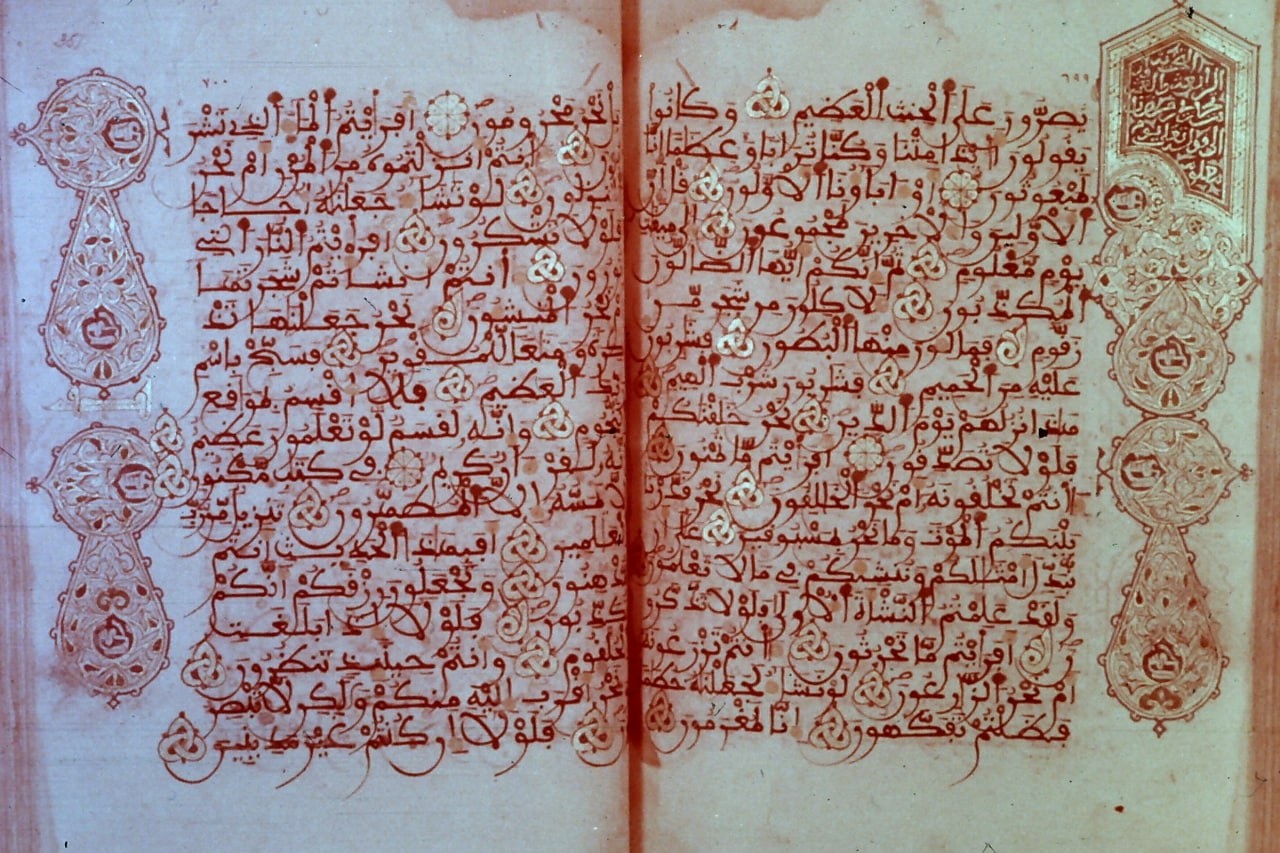 ٦٩٩
يصرون على الحنث العظيم وكانوا
يقولون أئذا متنا وكنا ترابا وعظاما إنا
لمبعوثون أو اباؤنا الأولون قل إن
الأولين والاخرين لمجموعون إلى ميقت
يوم معلوم ثم إنكم أيها الضالون
المكذبون لأكلون من شجر من
زقوم فمالئون منها البطون فشربون
عليه من الحميم فشربون شرب الهيم
هذا نزلهم يوم الدين نحن خلقنكم
فلولا تصدقون أفرأيتم ما تمنون
ءانتم تخلقونه أم نحن الخلقون نحن قدرنا
بينكم الموت وما نحن بمسبوقين على أن
نبدل أمثلكم وننشئكم في ما لا تعلمون
ولقد علمتم النشأة الأولى فلولا تذكرو
ن أفرأيتم ما تحرثون ءانتم تزرعونه
أم نحن الزارعون لو نشاء لجعلنه حطما
فظلتم تفكهون إنا لمغرمون
٧٠٠
بل نحن محرومون أفرأيتم الماء الذي تشر
بون ءانتم أنزلتموه من المزن أم نحن
المنزلون لو نشاء جعلنه أجاجا
فلولا تشكرون أفرأيتم النار التي
تورون ءانتم أنشأتم شجرتها
أم نحن المنشئون نحن جعلنها تذ
كرة ومتعا للمقوين فسبح باسم
ربك العظيم فلا أقسم بموقع
النجوم وإنه لقسم لو تعلمون عظيم
إنه لقرءان كريم في كتب مكنون
لا يمسه إلا المطهرون تنزيل من رب
العلمين أفبهذا الحديث أنتم
مدهنون وتجعلون رزقكم أنكم
تكذبون فلولا إذا بلغت
الحلقوم وأنتم حينئذ تنظرون
ونحن أقرب إليه منكم ولكن لا تبصر
ون فلولا إن كنتم غير مدينين